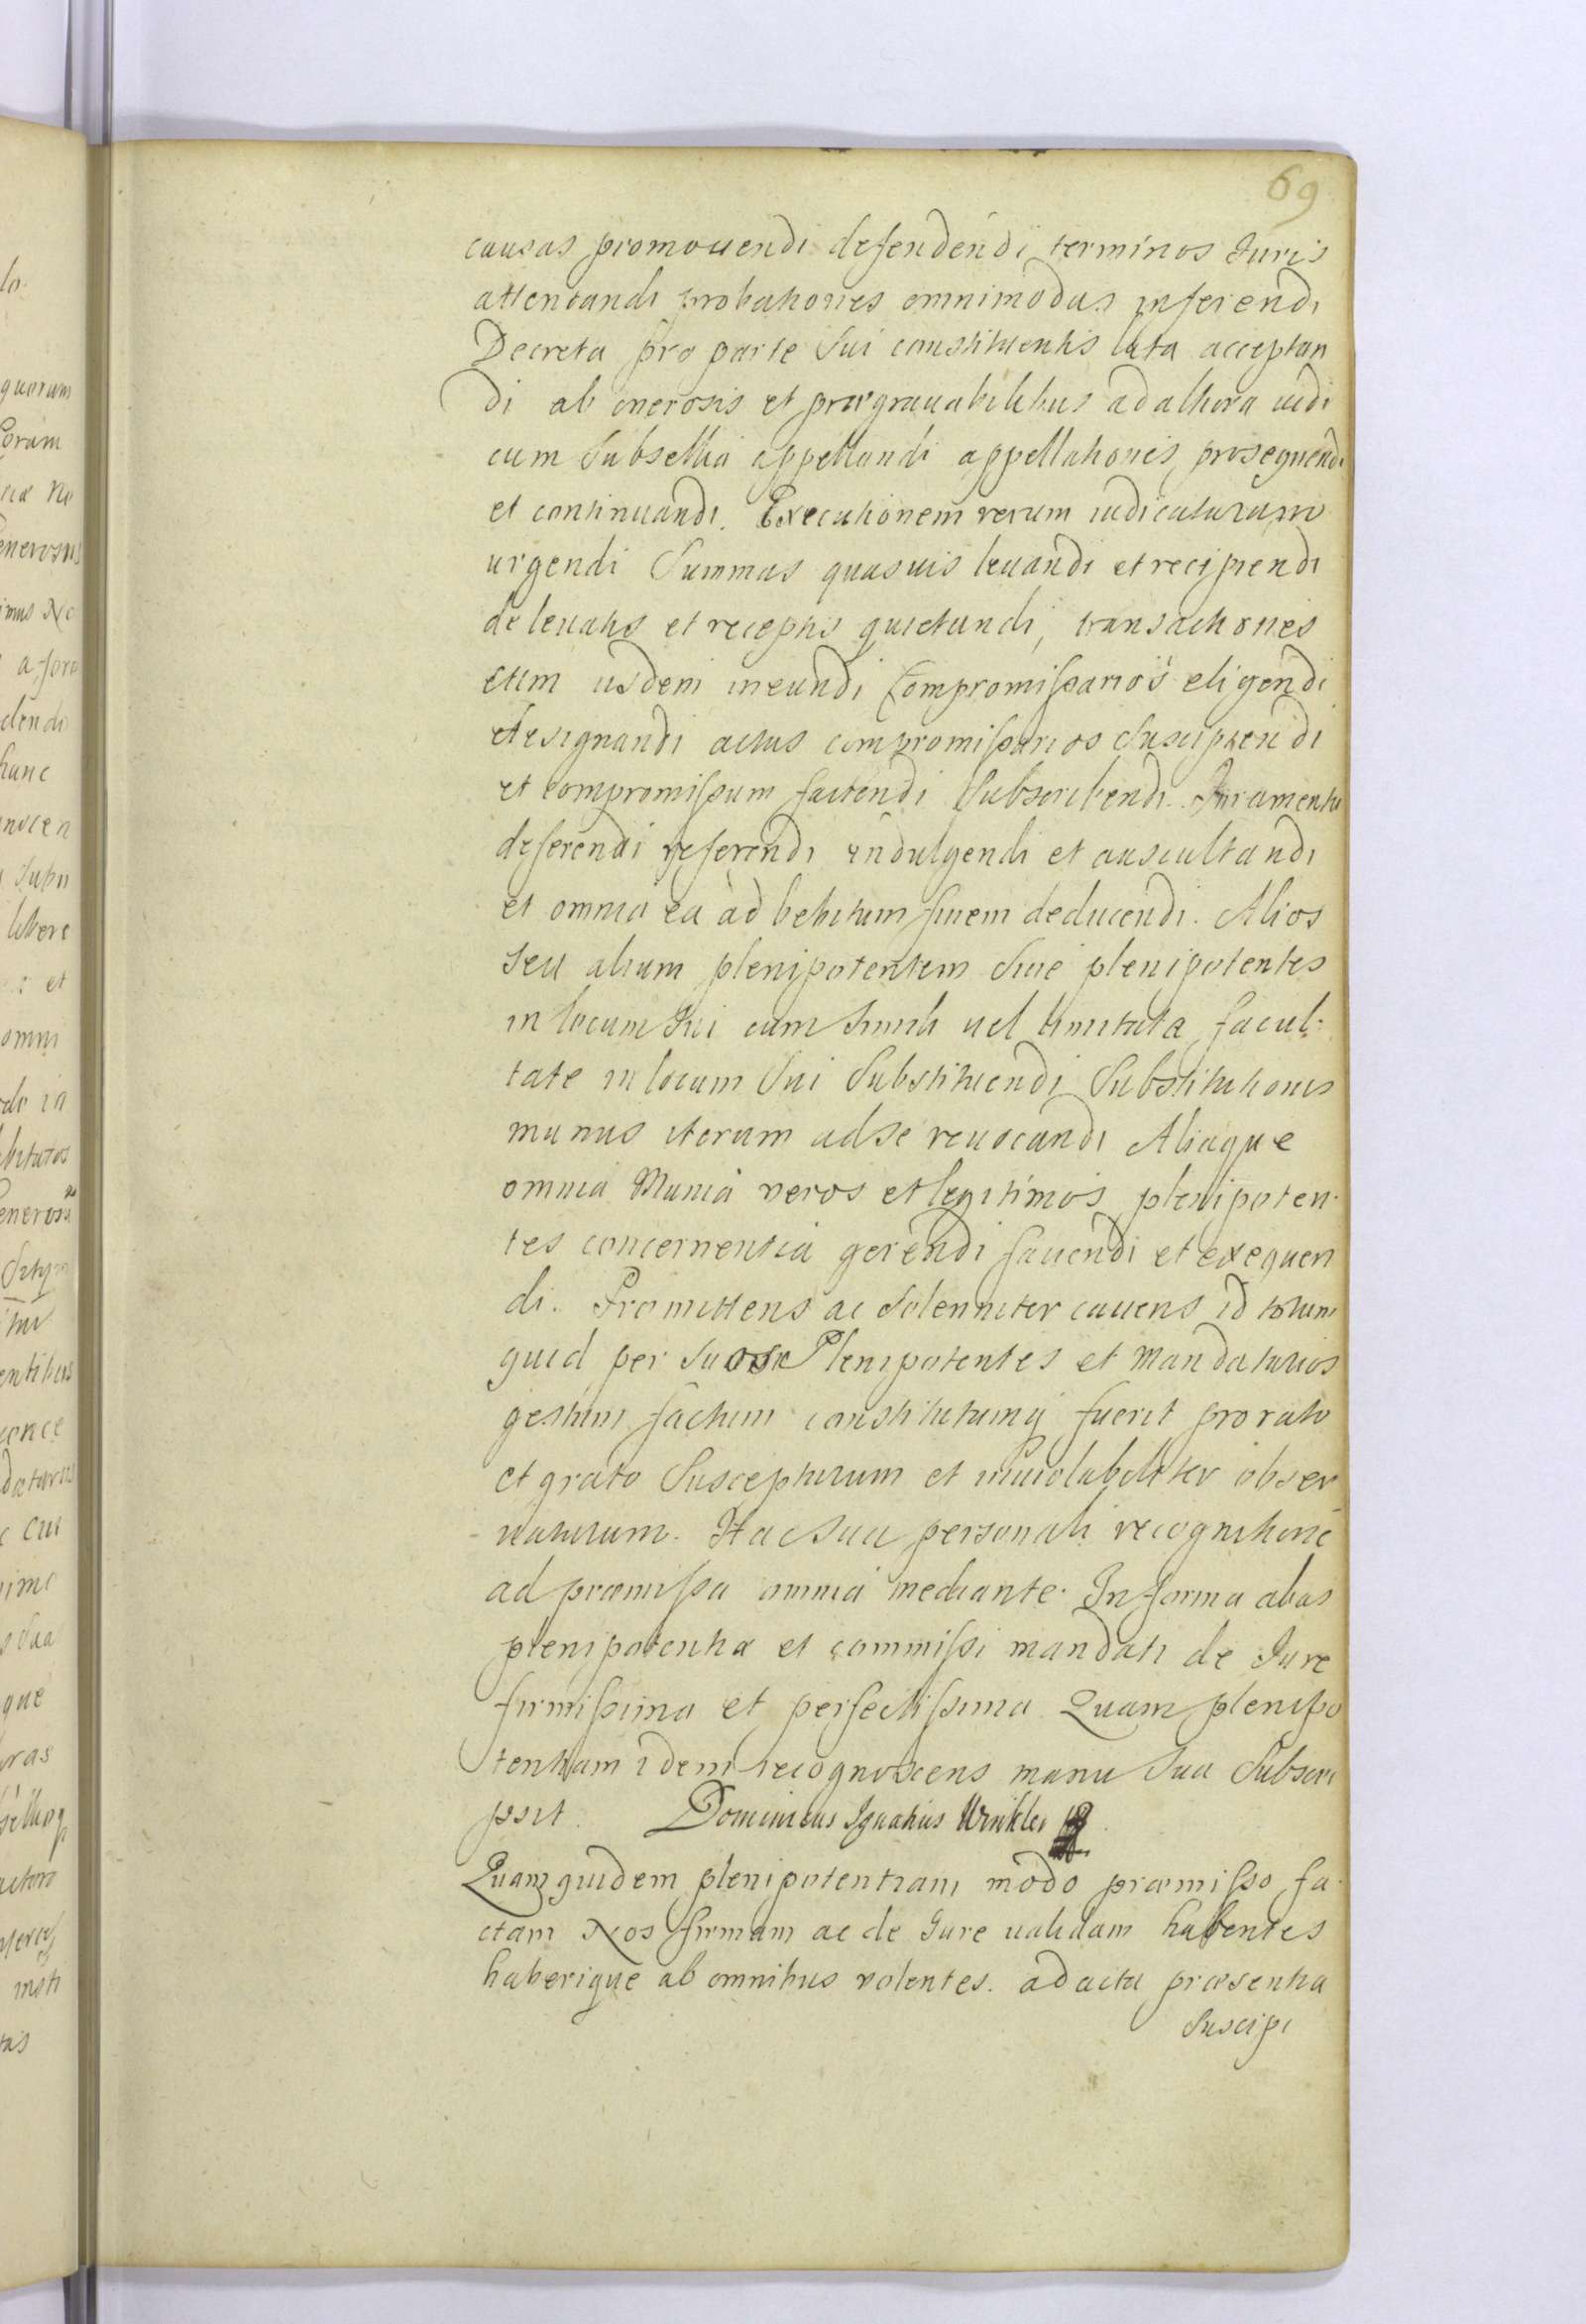 69
causas promouendi defendendi terminos Juris
attentandi probationes omnimodas inferendi
Decreta pro parte Sui constituentis lata acceptan
di ab onerosis et prægrauabilibus ad altiora iudi
cum Subsellia appellandi appellationes prosequendi
et continuandi. Executionem rerum iudicatarum
urgendi Summas quasuis leuandi et recipiendi
de leuatis et receptis quietandi, transactiones
cum iisdem ineundi Compromissarios eligendi
designandi actus compromissarios Suscipiendi
et compromissum faciendi Subscribendi. Juramenta
deferendi referendi indulgendi et auscultandi
et omnia ea ad bebitum finem deducendi. Alios
seu alium plenipotentem Siue plenipotentes
in locum Sui cum Simili uel limitata facul-
tate in locum Sui Substituendi Substitutionis
munus iterum ad se reuocandi Aliaque
omnia Munia veros et legitimos plenipoten-
tes concernentia gerendi fauendi et exequen
di. Promittens ac Solenniter cauens id totum
quid per Suos Plenipotentes et Mandatarios
gestum factum constitutumq fuerit pro rato
et grato Suscepturum et inuiolabiliter obser
uaturum. Hac Sua personali recognitione
ad præmissa omnia mediante. In forma alias
plenipotentiæ et commissi mandati de Jure
firmissima et perfectissima Quam plenipo
tentiam idem recognoscens manu Sua Subscri
psit. Dominicus Ignatius Winkler
Quamquidem plenipotentiam modo præmisso fa-
ctam Nos firmam ac de Jure ualidam habentes
haberique ab omnibus volentes. ad acta præsentia
Suscipi
lo
quorum
Coram
a fore
dendo
hunc
libere
et
omni
que